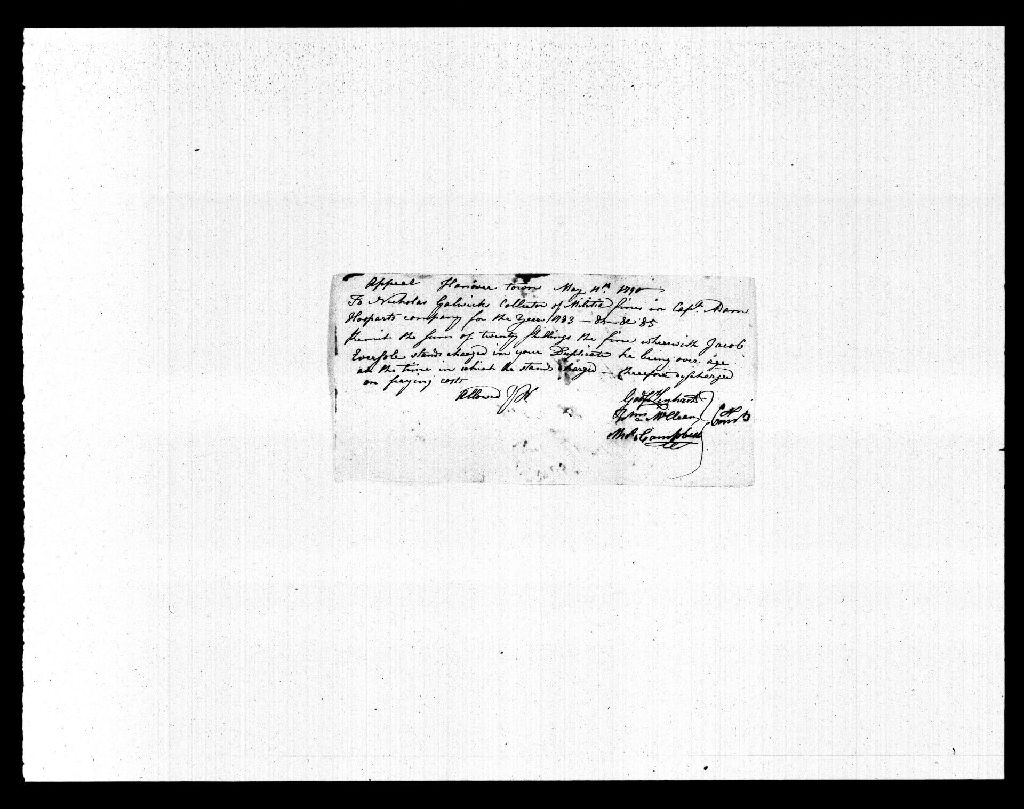 Appeal Hanover town May 4th 1790
To Nicholas Gelwick Collector of Militia fines in Capt. Adam
Hooparts company for the Years 1783 - 84 & 85
Remit the sum of twenty shillings the fine wherewith Jacob
Eversole stands charged in your Duplicate he being over age
at the time in which he stands charged - therefore discharged
on paying costs
Allowed JH
Godf. Lenhart
Wm McClean
Comrs
Campbell